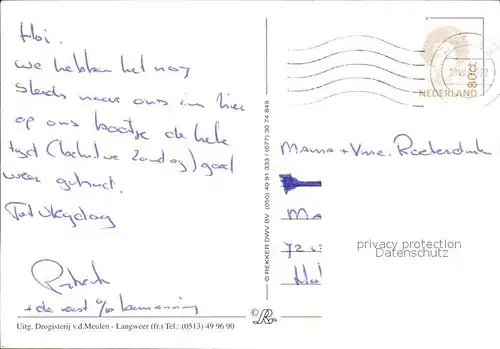 Hoi.
We hebben het nog
steeds naar ons in hier
op ons bootje de hele
tijd (behalve Zondag) goed
weer gehad.
Tot
+ de rest v/d bemanning
Uitg. Drogisterij v.d. Meulen - Langweer (fr.) Tel.: (0513) 49 96 90
© REKKER DWV BV (050) 40 91 333 / (077) 30 74 649
80ct
NEDERLAND
Mama + Vme.
Ma
72
privacy protection
Datenschutz